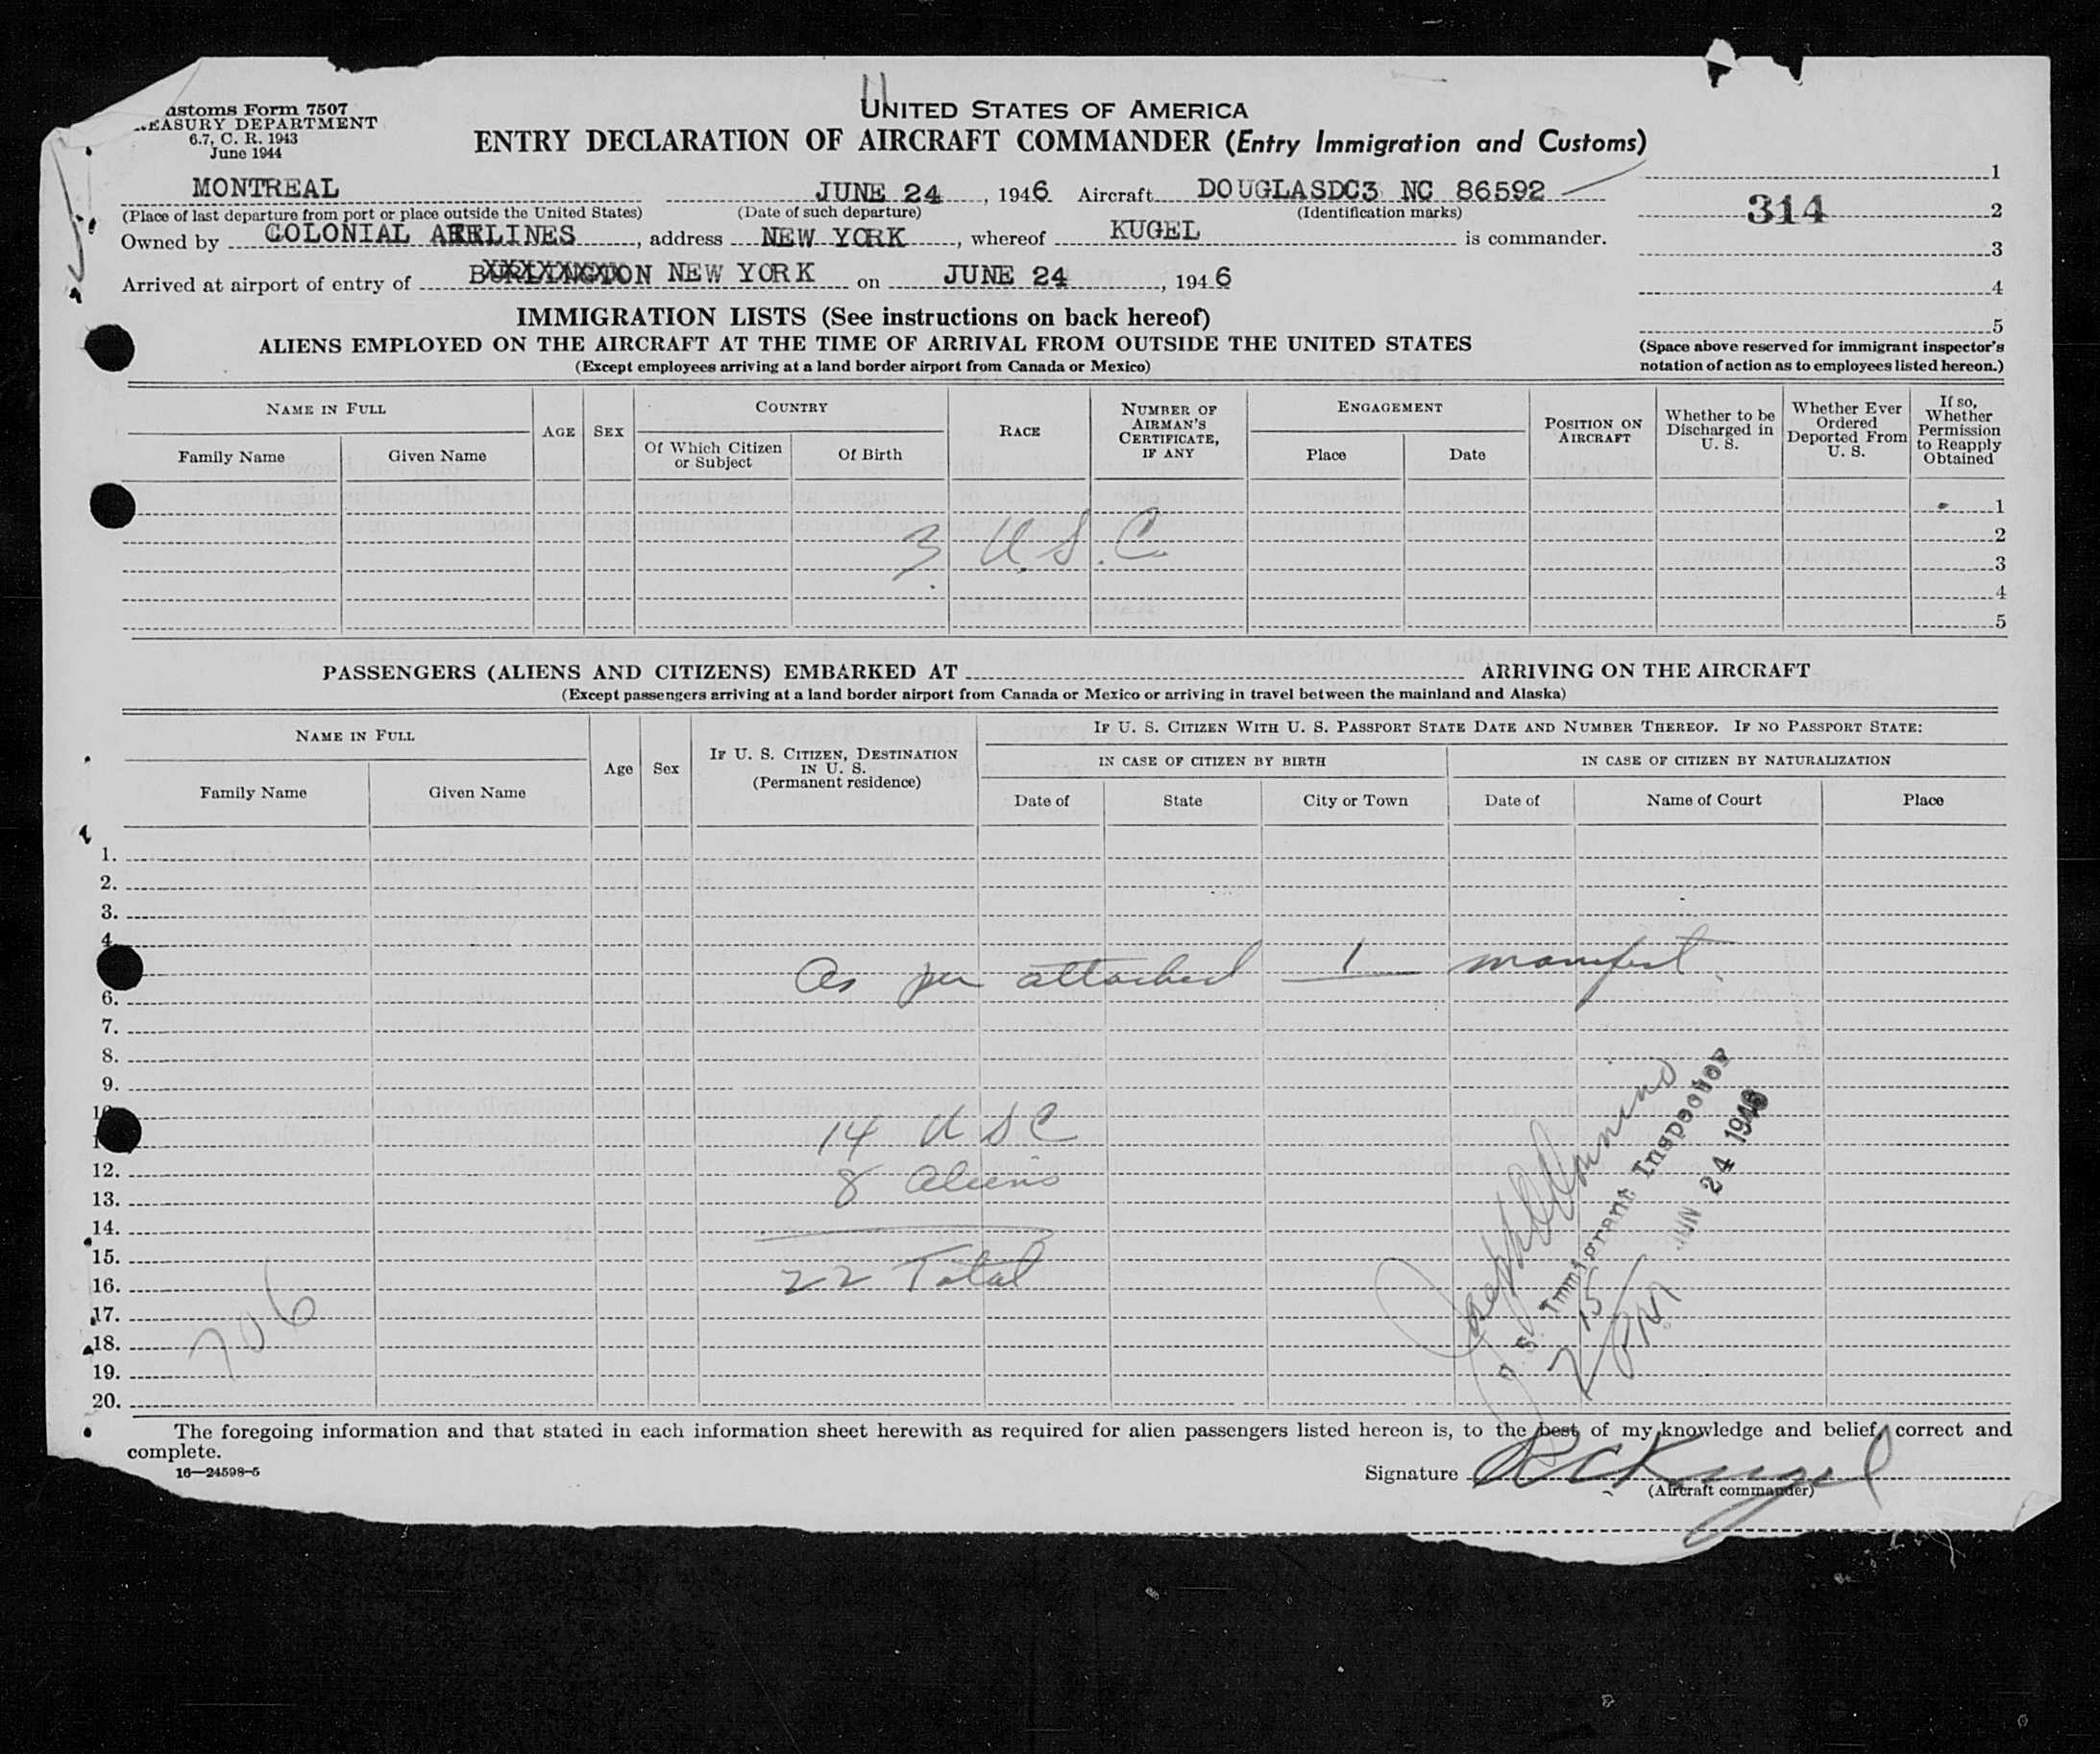 ustoms Form 7507
EASURY DEPARTMENT
6.7, C. R. 1943
June 1944
UNITED STATES OF AMERICA
ENTRY DECLARATION OF AIRCRAFT COMMANDER (Entry Immigration and Customs)
MONTREAL JUNE 24, 1946 Aircraft DOUGLASDC3 NC 86592
(Place of last departure from port or place outside the United States) (Date of such departure) (Identification marks)
Owned by COLONIAL AIRLINES, address NEW YORK, whereof KUGEL is commander.
Arrived at airport of entry of BURLINGTON NEW YORK on JUNE 24, 1946
1
314 2
3
4
5
(Space above reserved for immigrant inspector's
notation of action as to employees listed hereon.)
IMMIGRATION LISTS (See instructions on back hereof)
ALIENS EMPLOYED ON THE AIRCRAFT AT THE TIME OF ARRIVAL FROM OUTSIDE THE UNITED STATES
(Except employees arriving at a land border airport from Canada or Mexico)
NAME IN FULL
Family Name
Given Name
AGE
SEX
COUNTRY
Of Which Citizen
or Subject
Of Birth
RACE
NUMBER OF
AIRMAN'S
CERTIFICATE,
IF ANY
ENGAGEMENT
Place
Date
POSITION ON
AIRCRAFT
Whether to be
Discharged in
U. S.
Whether Ever
Ordered
Deported From
U. S.
If so,
Whether
Permission
to Reapply
Obtained
1
2
3 U.S.C.
3
4
5
PASSENGERS (ALIENS AND CITIZENS) EMBARKED AT ARRIVING ON THE AIRCRAFT
(Except passengers arriving at a land border airport from Canada or Mexico or arriving in travel between the mainland and Alaska)
NAME IN FULL
Family Name
Given Name
Age
Sex
IF U. S. CITIZEN, DESTINATION
IN U. S.
(Permanent residence)
IF U. S. CITIZEN WITH U. S. PASSPORT STATE DATE AND NUMBER THEREOF. IF NO PASSPORT STATE:
IN CASE OF CITIZEN BY BIRTH
IN CASE OF CITIZEN BY NATURALIZATION
Date of
State
City or Town
Date of
Name of Court
Place
1.
2.
3.
4.
As per attached 1 manifest.
6.
7.
8.
9.
10
1
14 USC
12.
8 Aliens
13.
14.
15.
22 Total
16.
17.
18.
706
19.
20.
U. S. Immigrant Inspector
JUN 24 1946
2 15 PM
The foregoing information and that stated in each information sheet herewith as required for alien passengers listed hereon is, to the best of my knowledge and belief, correct and
complete.
16—24598-5
Signature R C Kugel
(Aircraft commander)